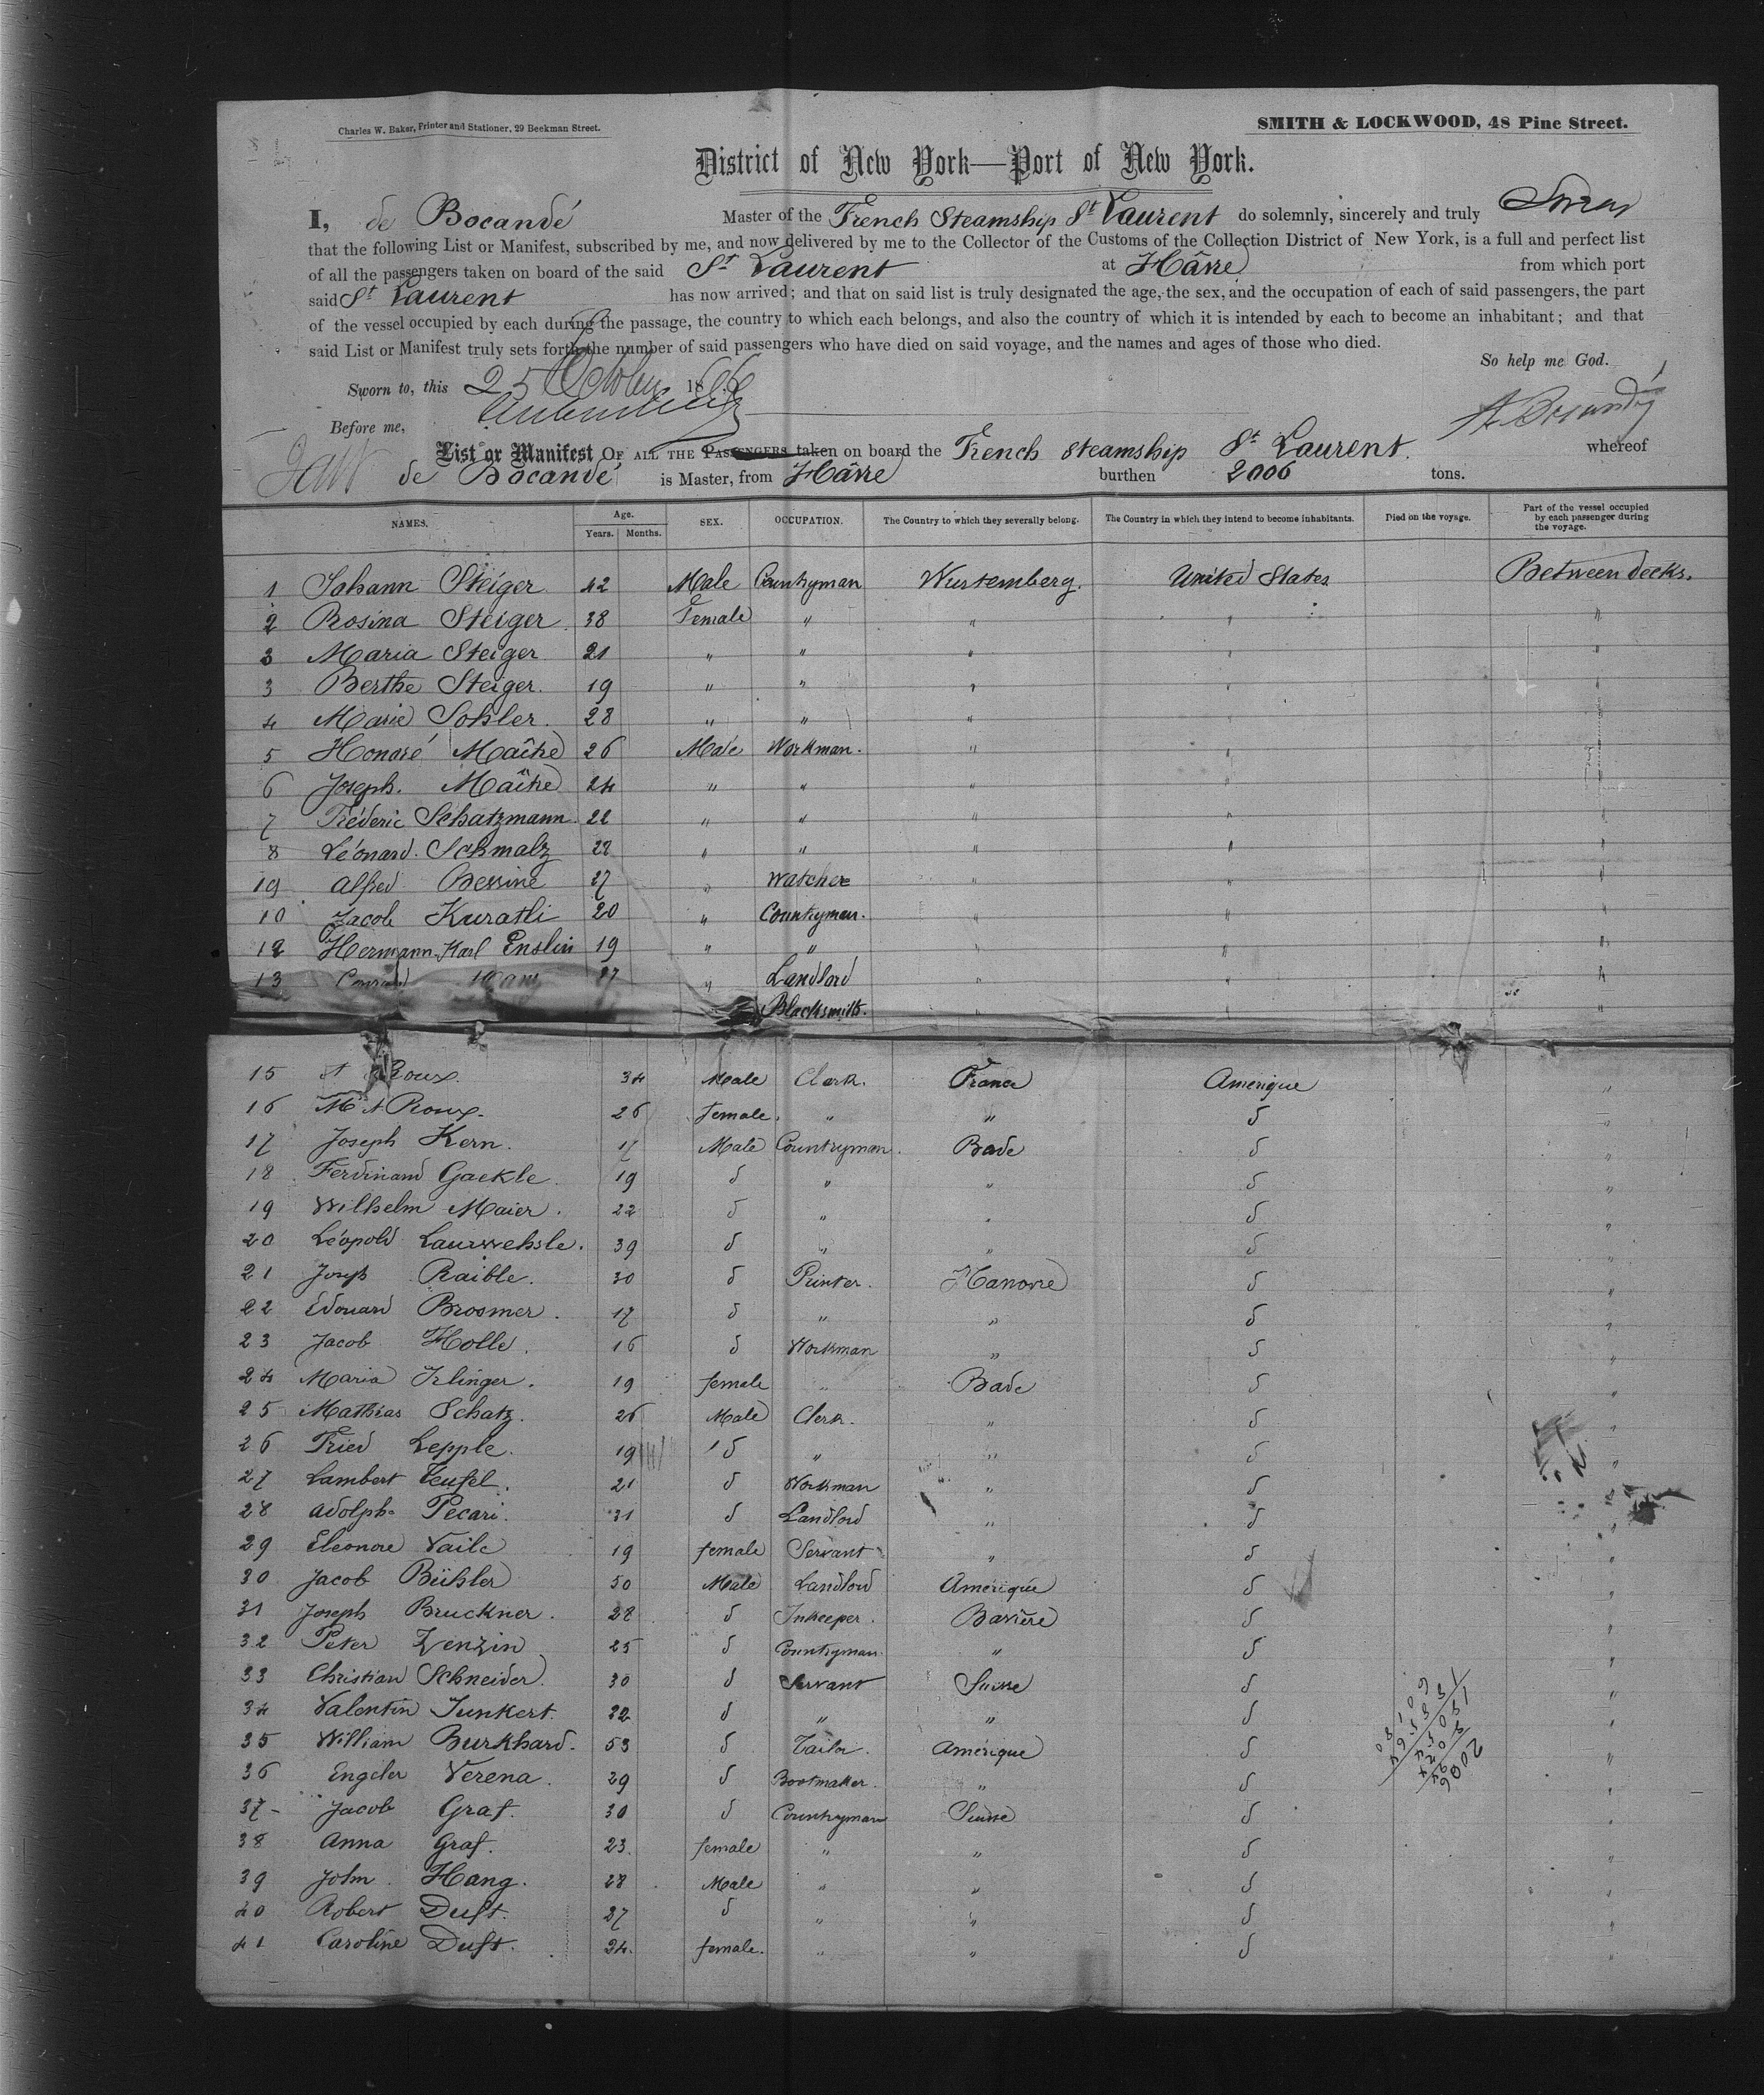 Charles W. Baker, Printer and Stationer, 29 Beekman Street.
SMITH & LOCKWOOD, 48 Pine Street.
District of New York—Port of New York.
I, de Bocandé Master of the French Steamship St Laurent do solemnly, sincerely and truly Swear
that the following List or Manifest, subscribed by me, and now delivered by me to the Collector of the Customs of the Collection District of New York, is a full and perfect list
of all the passengers taken on board of the said St Laurent at Hâvre from which port
said St Laurent has now arrived; and that on said list is truly designated the age, the sex, and the occupation of each of said passengers, the part
of the vessel occupied by each during the passage, the country to which each belongs, and also the country of which it is intended by each to become an inhabitant; and that
said List or Manifest truly sets forth the number of said passengers who have died on said voyage, and the names and ages of those who died.
So help me God.
Sworn to, this 25 October 1866
Before me,
List or Manifest OF ALL THE PASSENGERS taken on board the French Steamship St Laurent. whereof
de Bocandé is Master, from Hâvre burthen 2006 tons.
NAMES. Age. Years. Months. SEX. OCCUPATION. The Country to which they severally belong. The Country in which they intend to become inhabitants. Died on the voyage. Part of the vessel occupied by each passenger during the voyage.
1 Johann Steiger 42 Male Countryman Wurtemberg. United States Between decks.
2 Rosina Steiger 38 Female " " " "
3 Maria Steiger 21 " " " " "
3 Berthe Steiger. 19 " " " " "
4 Marie Sohler. 28 " " " " "
5 Honoré Maître 26 Male Workman. " " "
6 Joseph. Maître 24 " " " " "
7 Fréderic Schatzmann. 22 " " " " "
8 Léonard. Schmalz 28 " " " " "
19 Alfred Bessine 27 " Watcher " " "
10 Jacob Kuratli 20 " Countryman. " " "
12 Hermann Karl Enslin 19 " " " " "
13 Conrad 27 " Landlord " " "
Blacksmith. " " "
15 A Roux. 34 Male Clerk. France Amerique "
16 M A Roux. 26 female. " " d "
17 Joseph Kern. 17 Male Countryman. Bade d "
18 Ferdinand Gaekle. 19 d " " d "
19 Wilhelm Maier. 22 d " " d "
20 Léopold Laurwehsle. 39 d " " d "
21 Joseph Raible. 30 d Printer. Hanovre d "
22 Edouard Brosmer. 17 d " " d "
23 Jacob Holle. 16 d Workman " d "
24 Maria Irlinger. 19 female " Bade d "
25 Mathias Schatz. 26 Male Clerk. " d "
26 Fried Lepple. 19 d " " d "
27 Lambert Teufel. 21 d Workman " d "
28 Adolphe Pecari. 31 d Landlord " d "
29 Eleonore Vaile 19 female Servant " d "
30 Jacob Bühler 50 Male Landlord Amerique d "
31 Joseph Bruckner. 28 d Inkeeper. Bavière d "
32 Peter Zenzin 25 d Countryman. " d "
33 Christian Schneider. 30 d Servant Suisse d "
34 Valentin Junkert. 22 d " " d "
35 William Burkhard. 53 d Tailor. Amérique d "
36 Engeler Verena. 29 d Bootmaker. " d "
37 - Jacob Graf. 30 d Countryman Suisse d "
38 Anna Graf. 23. female " " d "
39 John Hang. 28 Male " " d "
40 Robert Duft. 27 d " " d "
41 Caroline Duft. 24. female. " " d "
2006